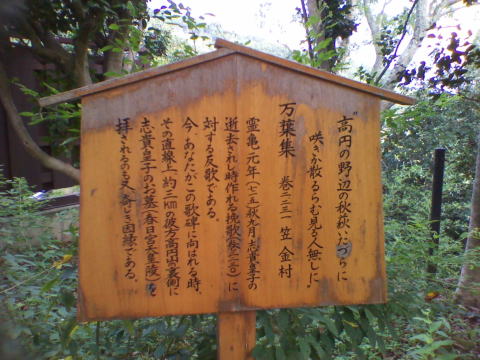 "高円の野辺の秋萩いたづらに
咲きか散るらむ見る人無しに"
万葉集 巻二二三一 笠 金村
霊亀元年(七一五)秋九月志貴皇子の
逝去されし時作れる挽歌(巻二二三〇)に
対する反歌である。
今、あなたがこの歌碑に向はれる時、
その直線上、約二Kmの彼方高円山の裏側に
志貴皇子のお墓(春日宮天皇陵)を
拝されるのも又、奇しき因縁である。